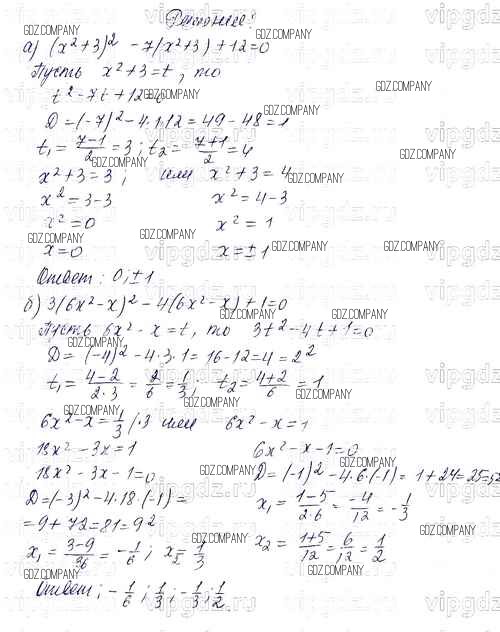 Решение:
а) (x²+3)² - 7(x²+3)+12=0
Пусть x²+3=t, то
t²-7t+12=0
D=(-7)²-4·1·12=49-48=1
t₁=(7-1)/2=3; t₂=(7+1)/2=4
x²+3=3; или x²+3=4
x²=3-3 x²=4-3
x²=0 x²=1
x=0 x=±1
Ответ: 0; ±1
б) 3(6x²-x)²-4(6x²-x)+1=0
Пусть 6x²-x=t, то 3t²-4t+1=0
D=(-4)²-4·3·1=16-12=4=2²
t₁=(4-2)/(2·3)=2/6=1/3; t₂=(4+2)/6=1
6x²-x=1/3 |·3 или 6x²-x=1
18x²-3x=1 6x²-x-1=0
18x²-3x-1=0 D=(-1)²-4·6·(-1)=1+24=25=5²
D=(-3)²-4·18·(-1)= x₁=(1-5)/(2·6)=-4/12=-1/3
=9+72=81=9²
x₁=(3-9)/36=-1/6; x₂=1/3 x₂=(1+5)/12=6/12=1/2
Ответ: -1/6; 1/3; -1/3; 1/2
GDZ.COMPANY
vipgdz.ru